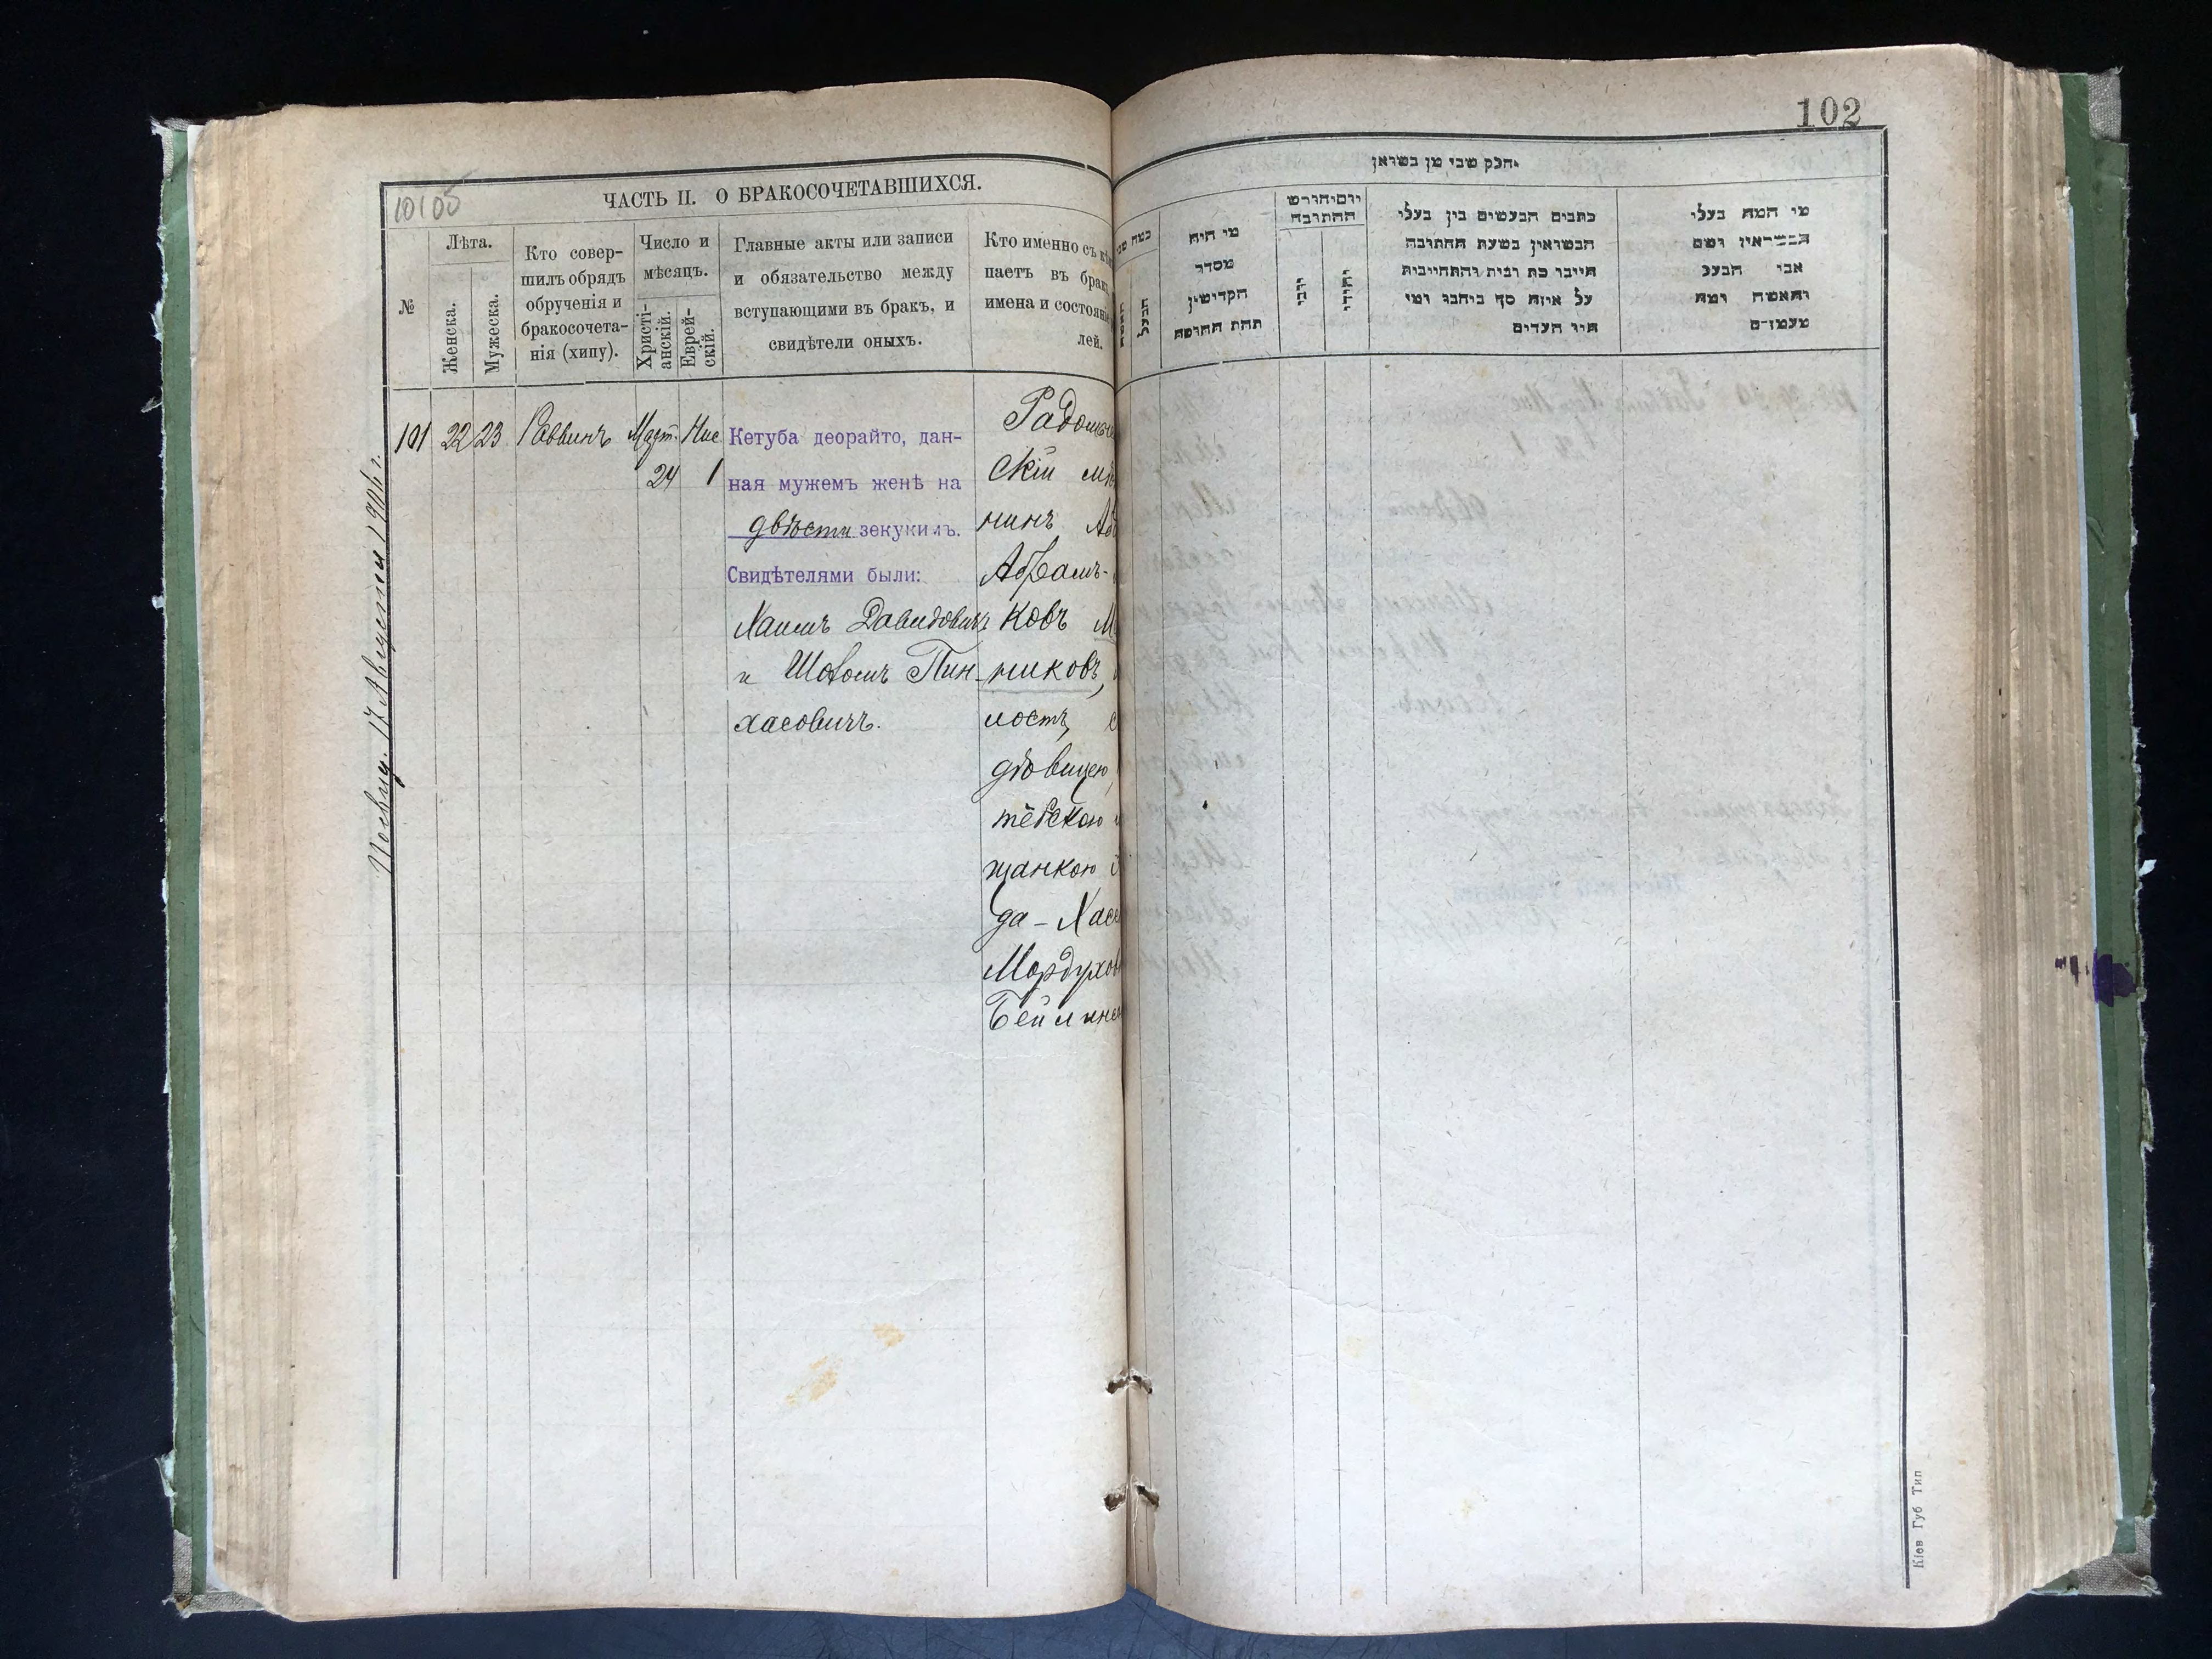 102
10105
ЧАСТЬ II. О БРАКОСОЧЕТАВШИХСЯ.
№
Лѣта.
Женска.
Мужеска.
Кто совер-
шилъ обрядъ
обрученія и
бракосочета-
нія (хипу).
Число и
мѣсяцъ.
Христі-
анскій.
Еврей-
скій.
Главные акты или записи
и обязательство между
вступающими въ бракъ, и
свидѣтели оныхъ.
Кто именно съ
паетъ въ брак
имена и состояніе
лей.
101 22 23 Раввинъ Март. Нис
24 1
Кетуба деорайто, дан-
ная мужемъ женѣ на
двѣсти зекукимъ.
Свидѣтелями были:
Хаимъ Давидовичъ
и Шоломъ Пин-
хасовичъ.
Радомы
скій мѣ
нинъ
Абрамъ-
ковъ М
никовъ,
лостъ, с
дѣвицею
терскою
щанкою
да-Хас
Мордухов
Бейлине
17 Августа 1906 г.
חלק שבי מן בשראן
מי היה
מסדר
הקדישין
תחת החופה
יום וחודש
הכתובה
יוני
יהודי
כתבים הנעשים בין בעלי
הנשואין בשעת הכתובה
חייבו כת ובית והתחייבות
על איזה סך ביחבו ומי
היו העדים
מי המה בעלי
הנשואין ושם
אבי הבעל
והאשה ומה
מעמדם
הבעל
Кіев Губ Тип